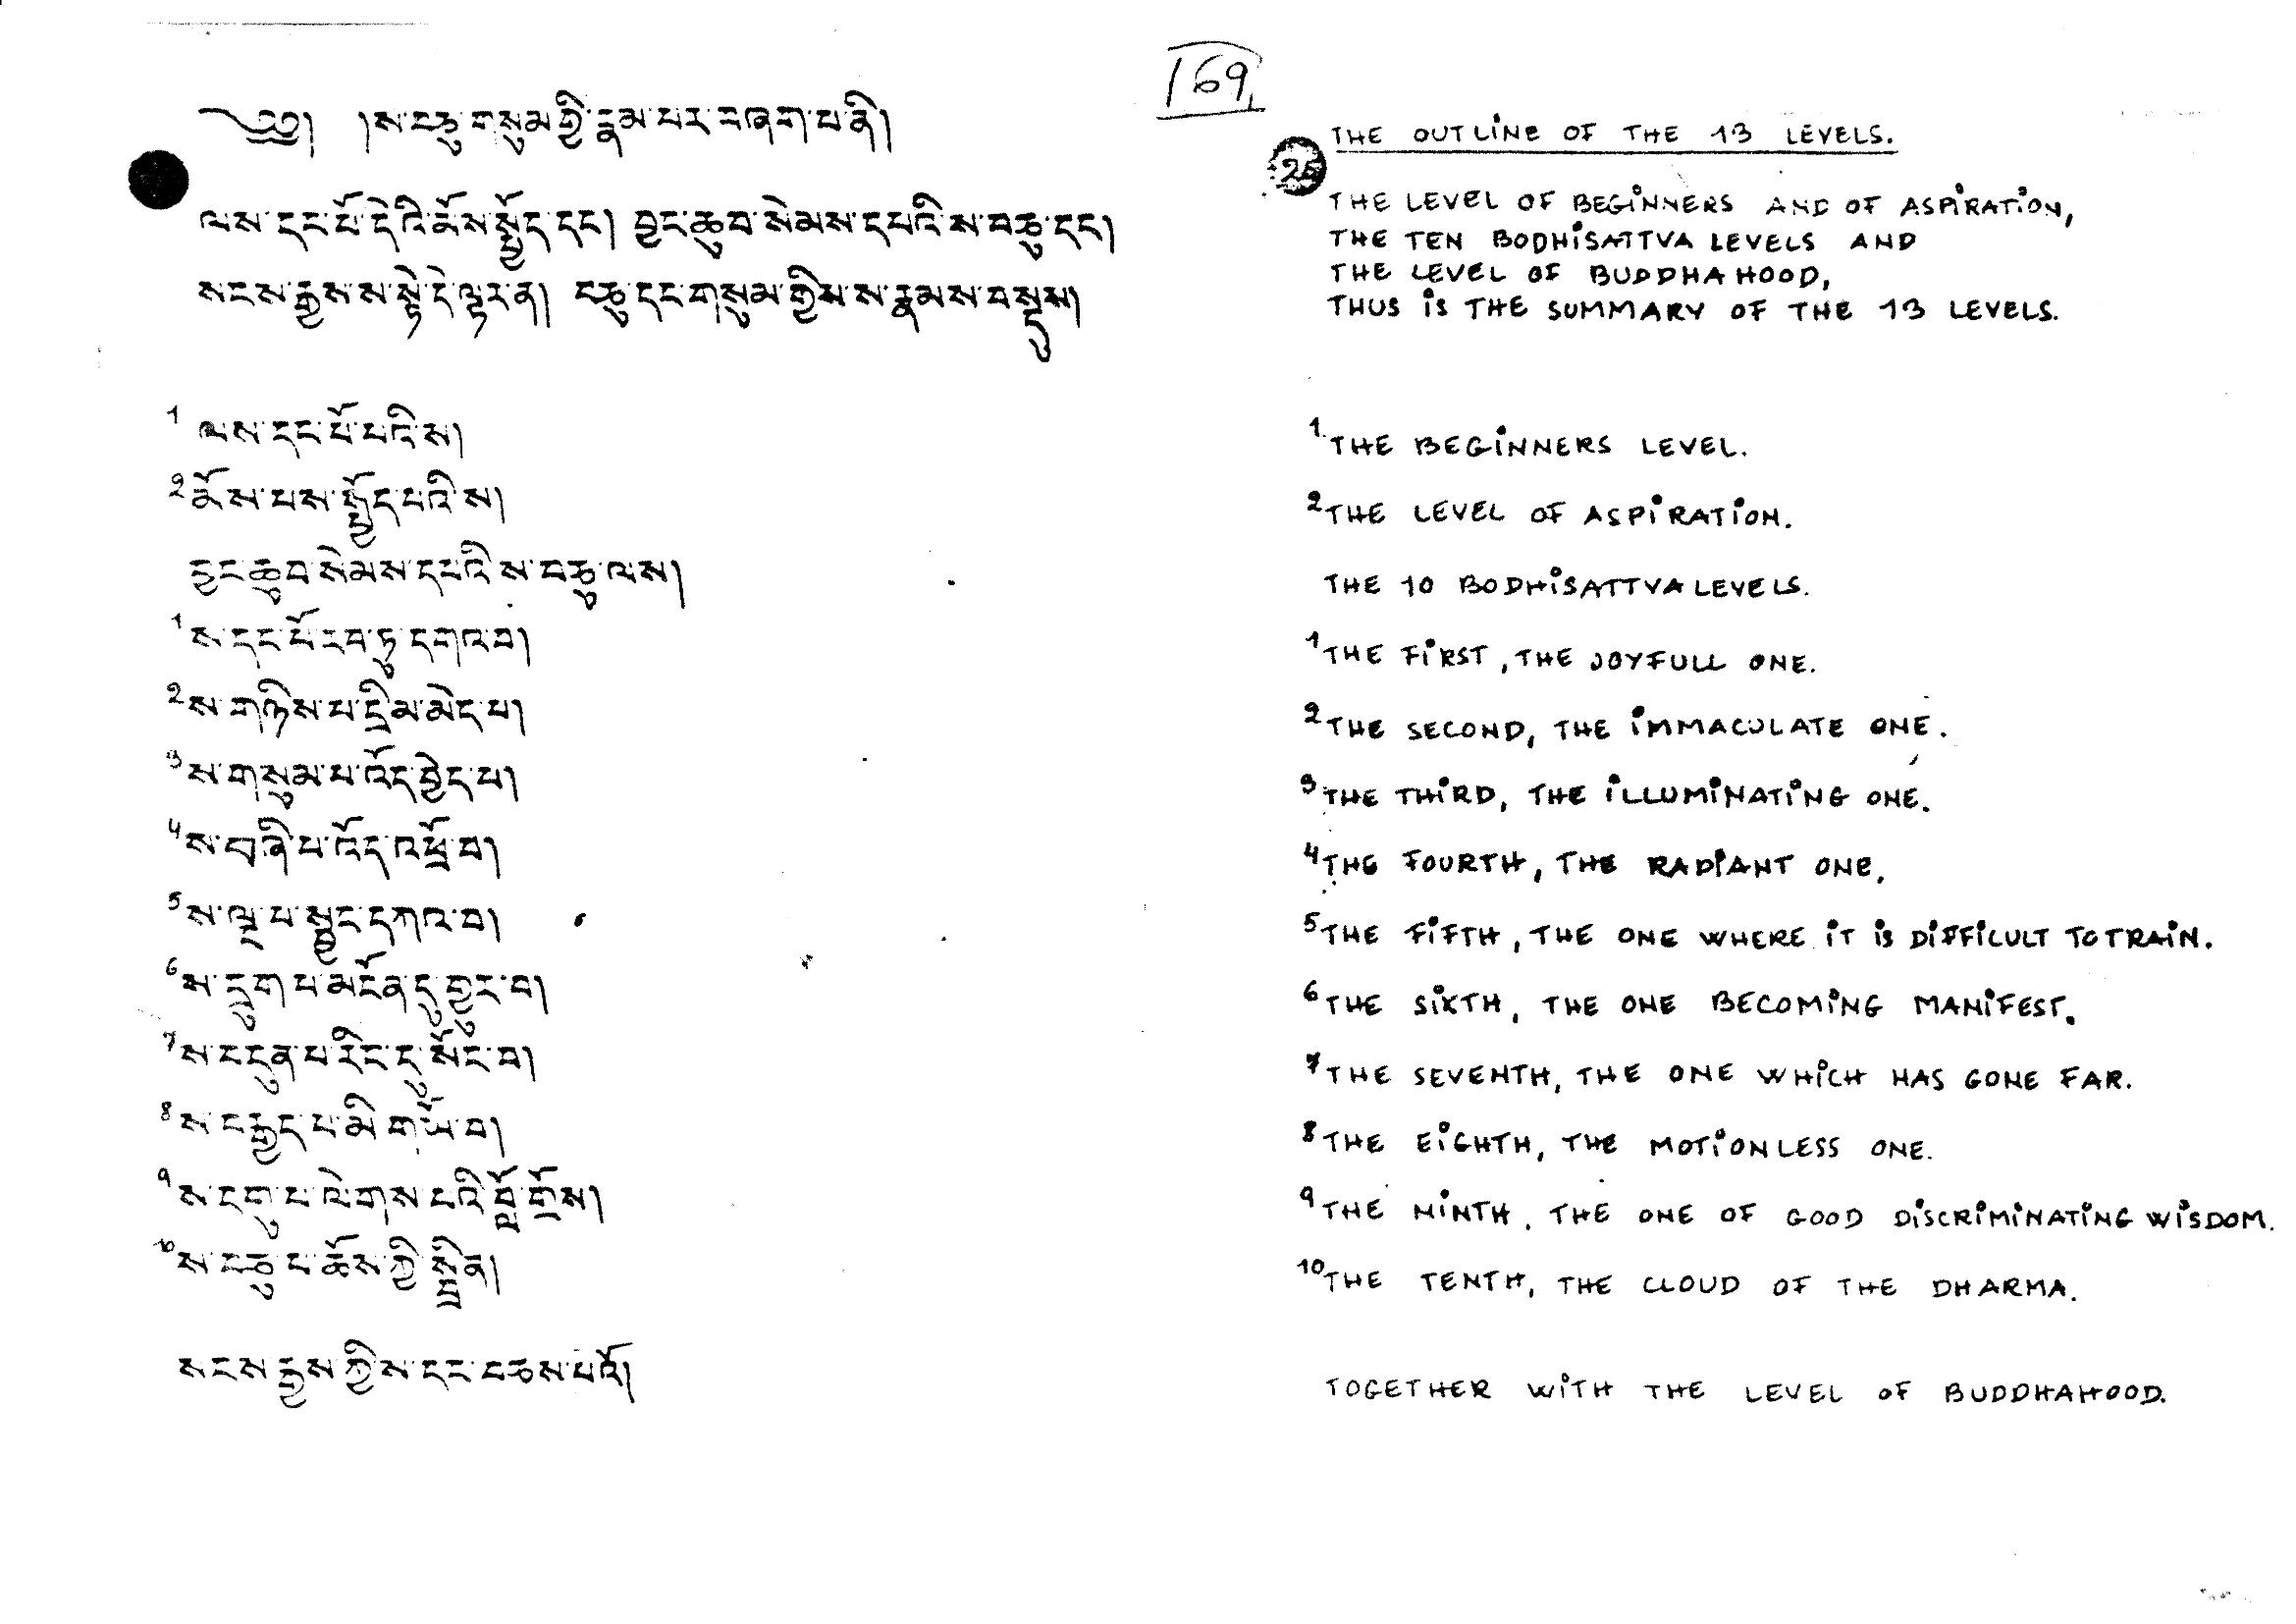 169
༄༅། །ས་བཅུ་གསུམ་གྱི་རྣམ་པར་བཞག་པ་ནི།
ལས་དང་པོ་དེའི་མོས་སྤྱོད་དང། བྱང་ཆུབ་སེམས་དཔའི་ས་བཅུ་དང།
སངས་རྒྱས་ས་སྟེ་དེ་ལྟར་ན། བཅུ་དང་གསུམ་གྱིས་ས་རྣམས་བསྡུས།
1 ལས་དང་པོ་པའི་ས།
2 མོས་པས་སྤྱོད་པའི་ས།
བྱང་ཆུབ་སེམས་དཔའི་ས་བཅུ་ལས།
1 ས་དང་པོ་རབ་ཏུ་དགའ་བ།
2 ས་གཉིས་པ་དྲི་མ་མེད་པ།
3 ས་གསུམ་པ་འོད་བྱེད་པ།
4 ས་བཞི་པ་འོད་འཕྲོ་བ།
5 ས་ལྔ་པ་སྦྱང་དཀའ་བ།
6 ས་དྲུག་པ་མངོན་དུ་གྱུར་བ།
7 ས་བདུན་པ་རིང་དུ་སོང་བ།
8 ས་བརྒྱད་པ་མི་གཡོ་བ།
9 ས་དགུ་པ་ལེགས་པའི་བློ་གྲོས།
10 ས་བཅུ་པ་ཆོས་ཀྱི་སྤྲིན།
སངས་རྒྱས་ཀྱིས་དང་བཅས་པའོ།
THE OUTLINE OF THE 13 LEVELS.
25
THE LEVEL OF BEGINNERS AND OF ASPIRATION,
THE TEN BODHISATTVA LEVELS AND
THE LEVEL OF BUDDHAHOOD,
THUS IS THE SUMMARY OF THE 13 LEVELS.
1. THE BEGINNERS LEVEL.
2 THE LEVEL OF ASPIRATION.
THE 10 BODHISATTVA LEVELS.
1 THE FIRST, THE JOYFULL ONE.
2 THE SECOND, THE IMMACULATE ONE.
3 THE THIRD, THE ILLUMINATING ONE.
4 THE FOURTH, THE RADIANT ONE.
5 THE FIFTH, THE ONE WHERE IT IS DIFFICULT TO TRAIN.
6 THE SIXTH, THE ONE BECOMING MANIFEST.
7 THE SEVENTH, THE ONE WHICH HAS GONE FAR.
8 THE EIGHTH, THE MOTIONLESS ONE.
9 THE NINTH, THE ONE OF GOOD DISCRIMINATING WISDOM.
10 THE TENTH, THE CLOUD OF THE DHARMA.
TOGETHER WITH THE LEVEL OF BUDDHAHOOD.